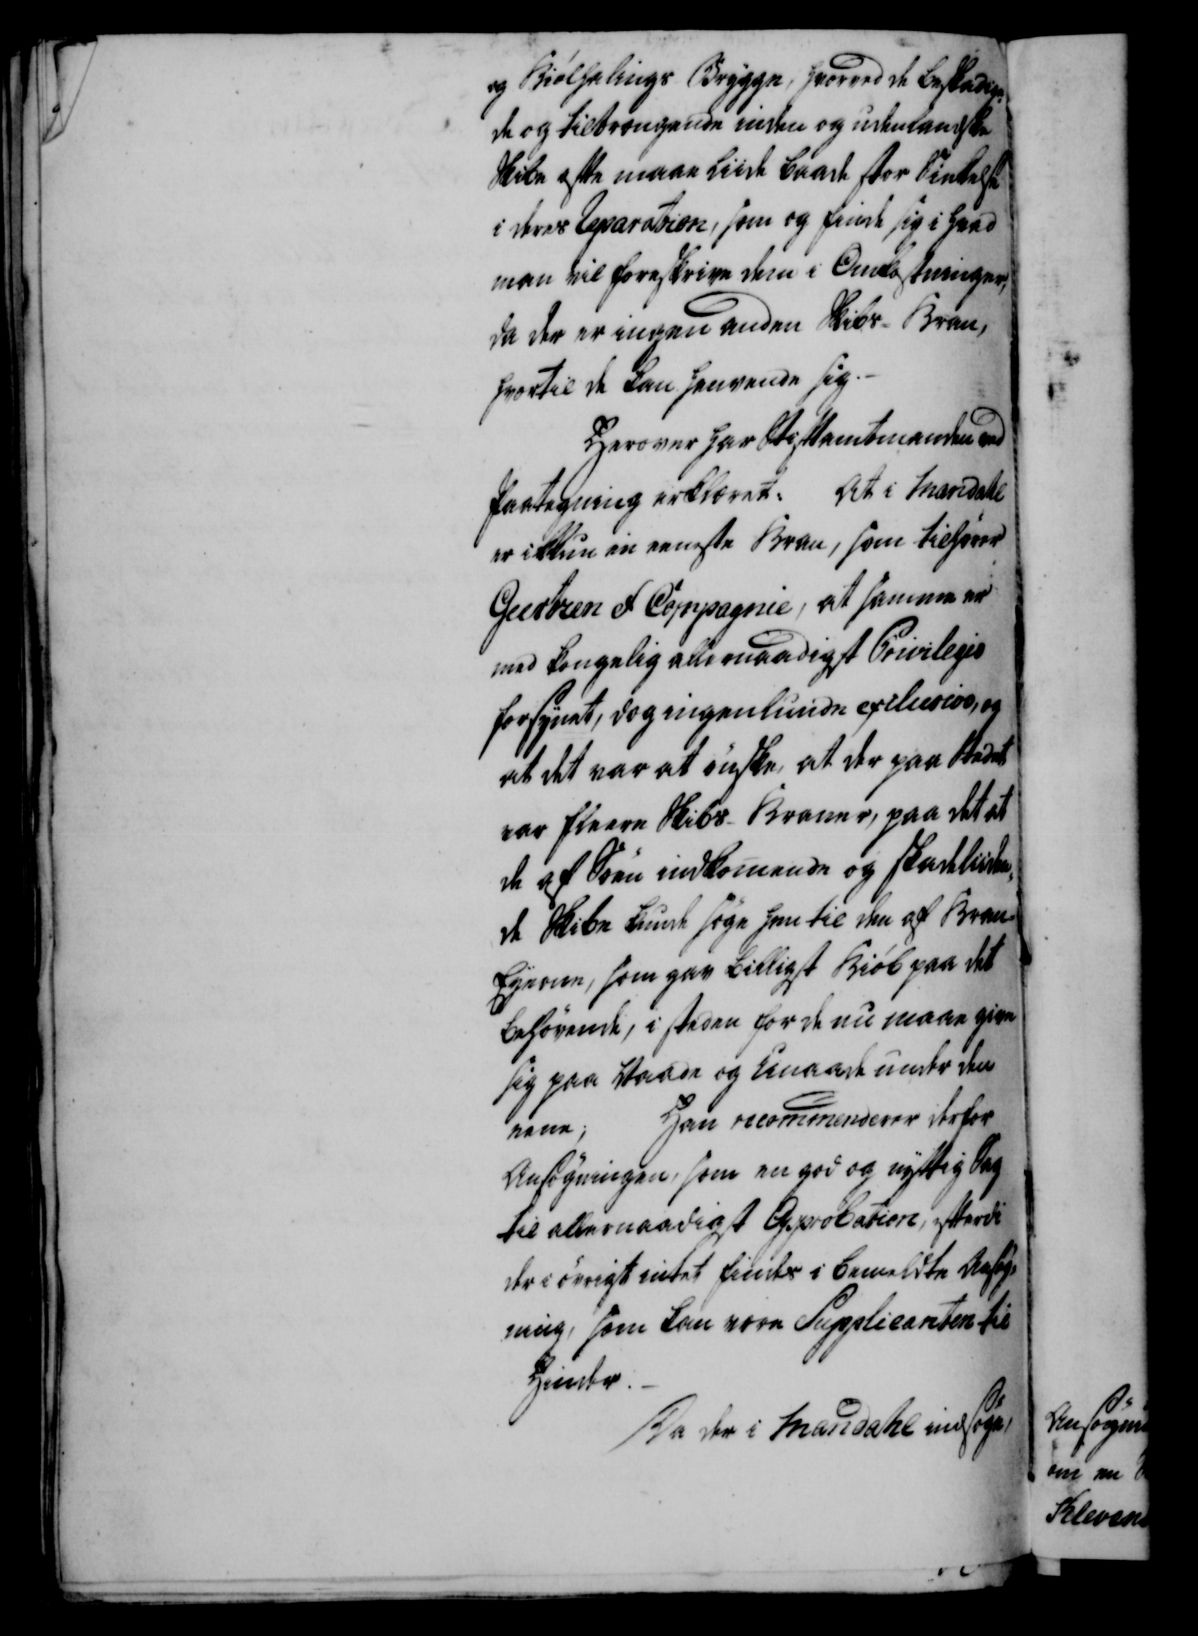 og Kiølhalings Brygge, hvorved de beskadige-
de og tiltrængende inden og udenlandske
Skibe ofte maae liide baade stor Sinkelse
i deres Reparation, som og finde sig i hvad
man vil foreskrive dem i Omkostninger,
da der er ingen anden Skibs-Kran,
hvortil de kan henvende sig.-
Herover har Stiftamtmanden ved
Paategning erklæret: At i Mandahl
er ikkun en eeneste Kran, som tilhører
Giertzen & Compagnie, at samme er
med kongelig allernaadigst Privilegio
forsynet, dog ingenlunde exclusivo, og
at det var at ønske, at der paa Stedet
var fleere Skibs-Kraner, paa det at
de af Søen indkomende og skadeliiden-
de Skibe kunde søge hen til den af Kran-
Eyerne, som gav billigst Kiøb paa det
behøvende, i steden for de nu maae give
sig paa Naade og Unaade under den
eene; Han recommenderer derfor
Ansøgningen, som en god og nyttig Sag
til allernaadigst Approbation, efterdi
der i øvrigt intet findes i bemeldte Ansøg-
ning, som kan være Supplicanten til
Hinder.-
Da der i Mandahl indsøge,
Ansøgni
om en
Klevens